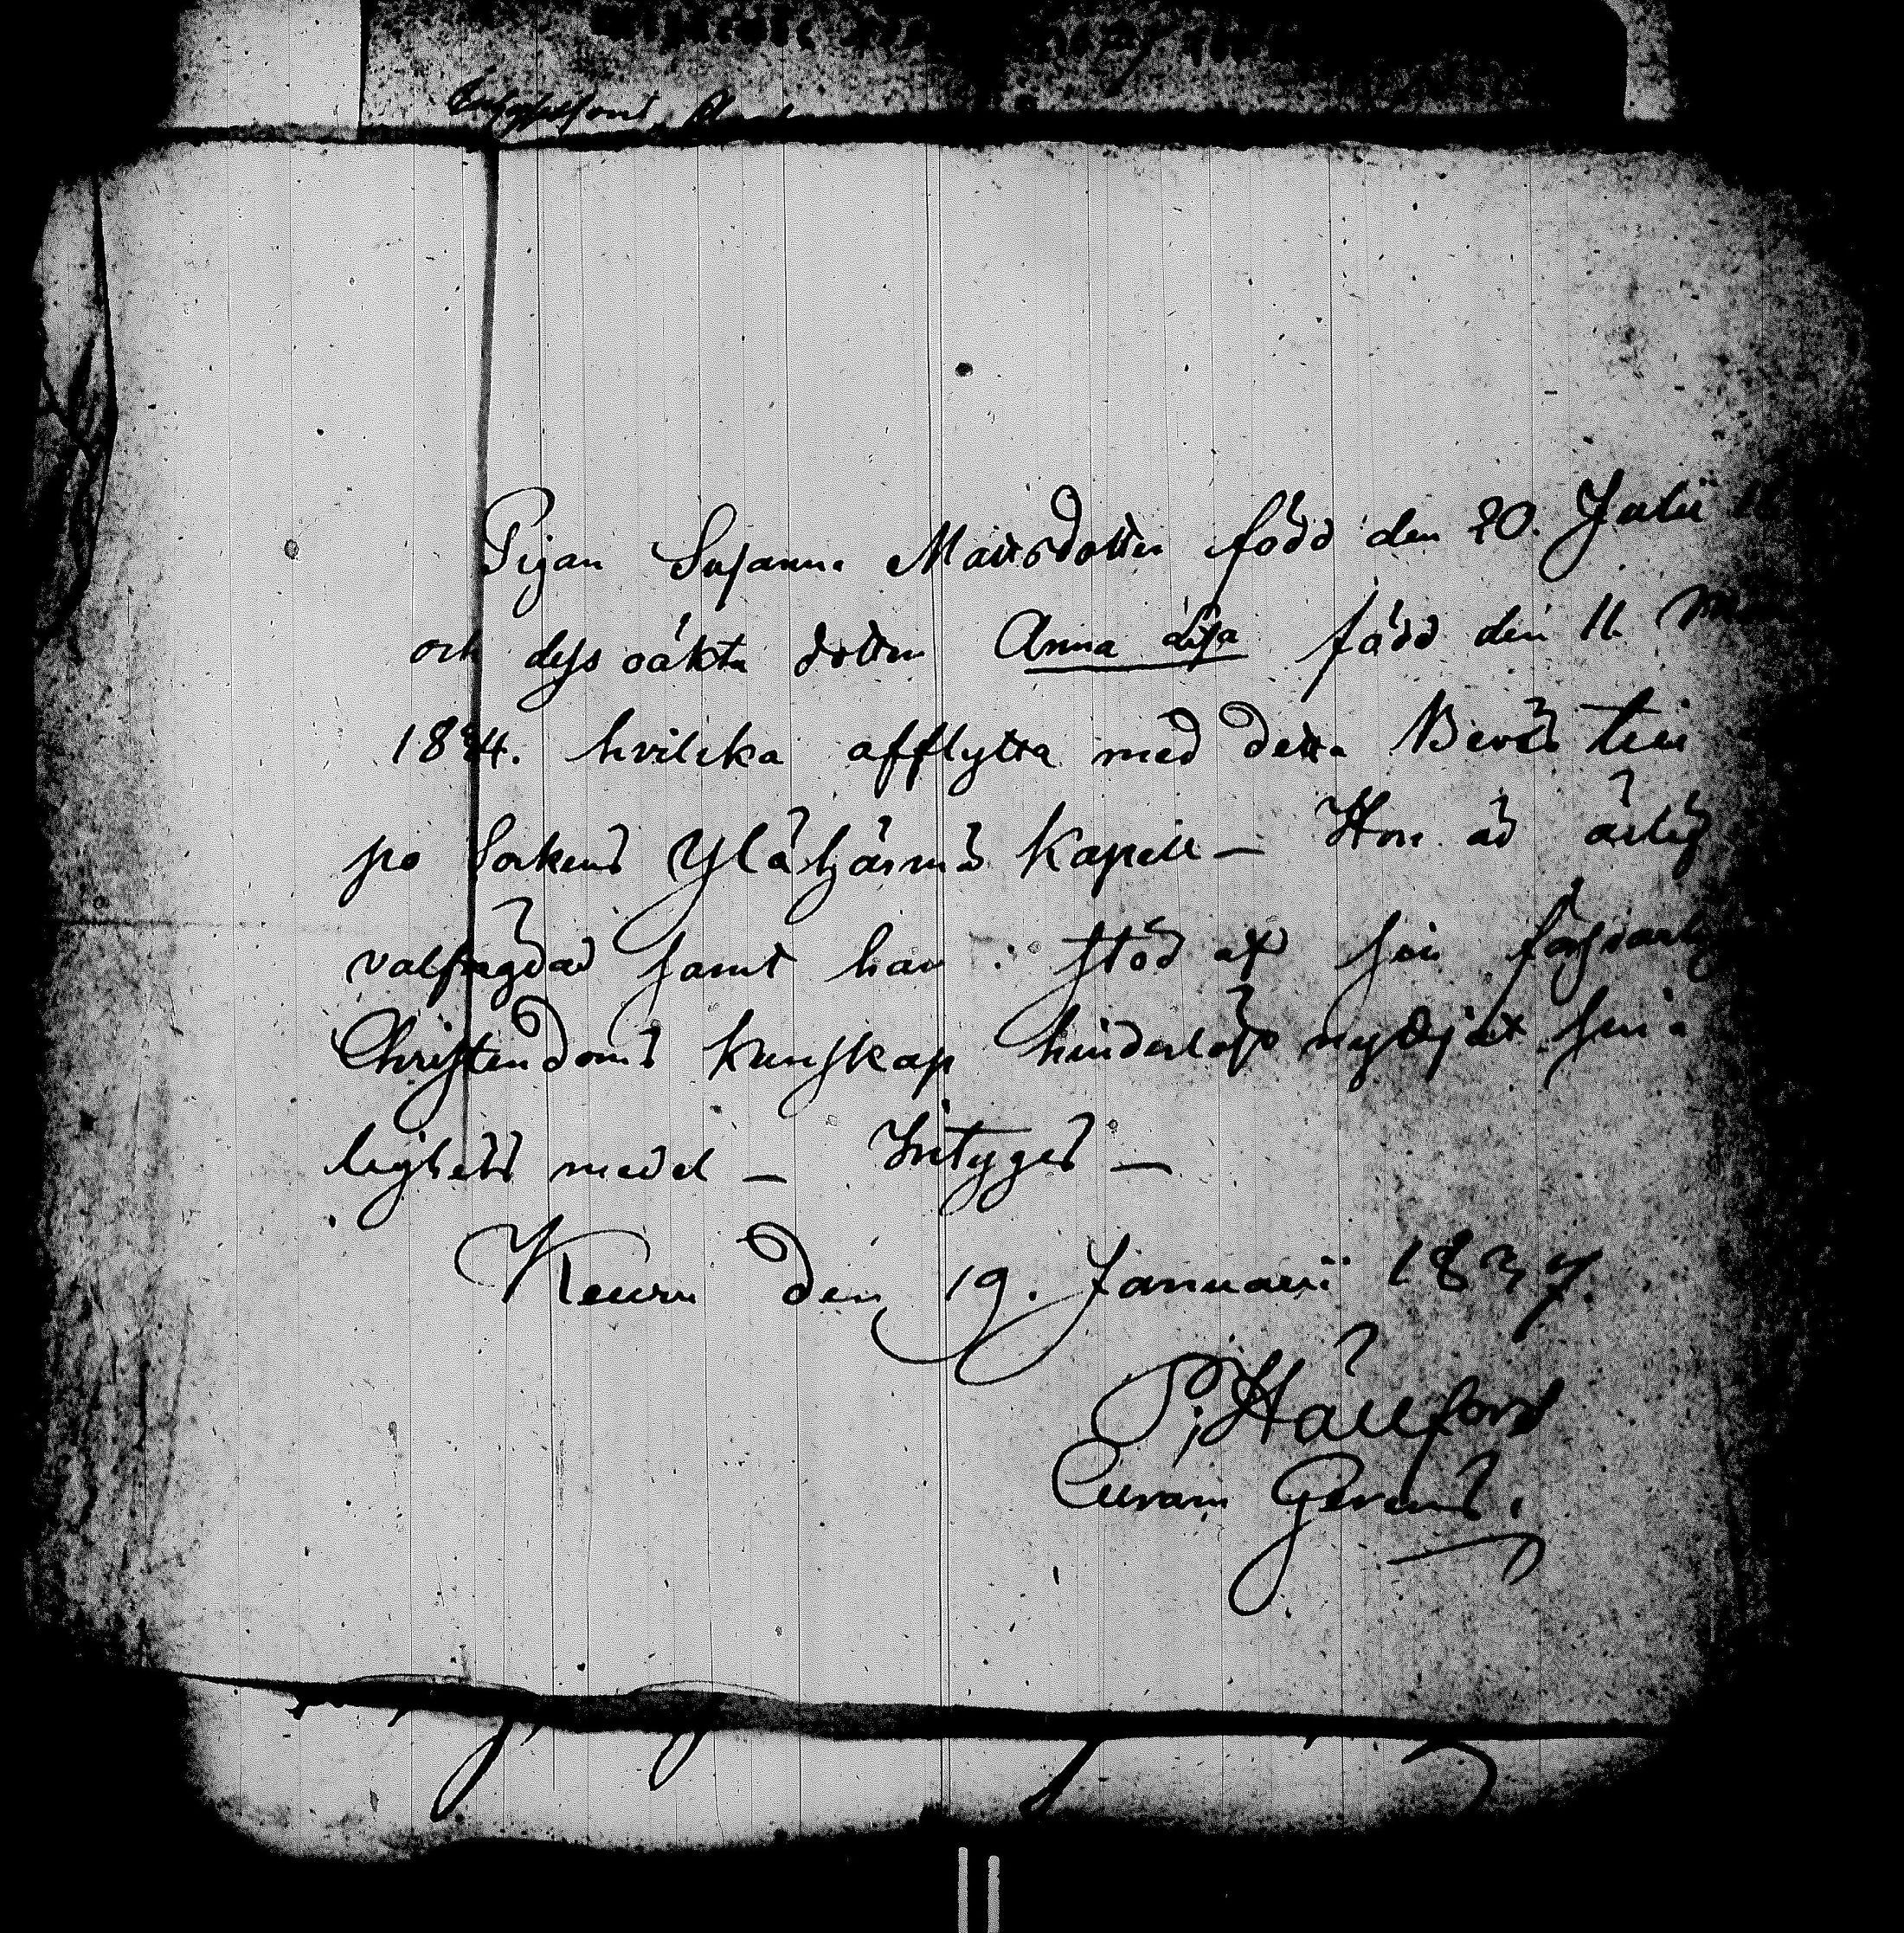 Pigan Susanna Mattsdotter född den 20. Julii
och dess oäkta dotter Anna Lisa född den 11
1834. hvilcka afflytta med detta Bevis till
po Sockens Ylähärmä Kapell – Hon är ärlig
välfrägdad samt har i stöd af sin försvarlig
Christendoms kunskap hinderlöst nyttjat sin
lighets medel – Intygas –
Keuru den 19. Januarii 1837.
P. Hällfors
Curam Gerens.